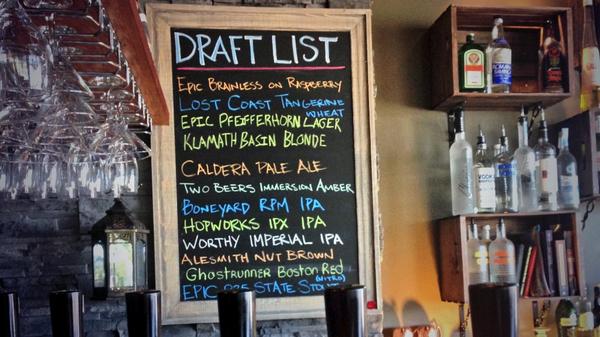 DRAFT LIST
EPIC BRAINLESS ON RASPBERRY
LOST COAST TANGERINE
WHEAT
EPIC PFEIFFERHORN LAGER
KLAMATH BASIN BLONDE
CALDERA PALE ALE
TWO BEERS IMMERSION AMBER
BONEYARD RPM IPA
HOPWORKS IPX IPA
WORTHY IMPERIAL IPA
ALESMITH NUT BROWN
GHOSTRUNNER BOSTON RED
(NITRO)
EPIC 825 STATE STOUT